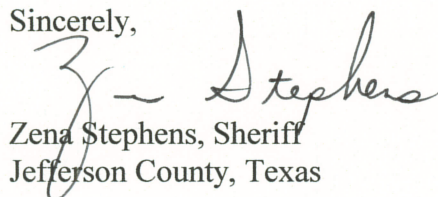 Sincerely,
Z Stephens
Zena Stephens, Sheriff
Jefferson County, Texas